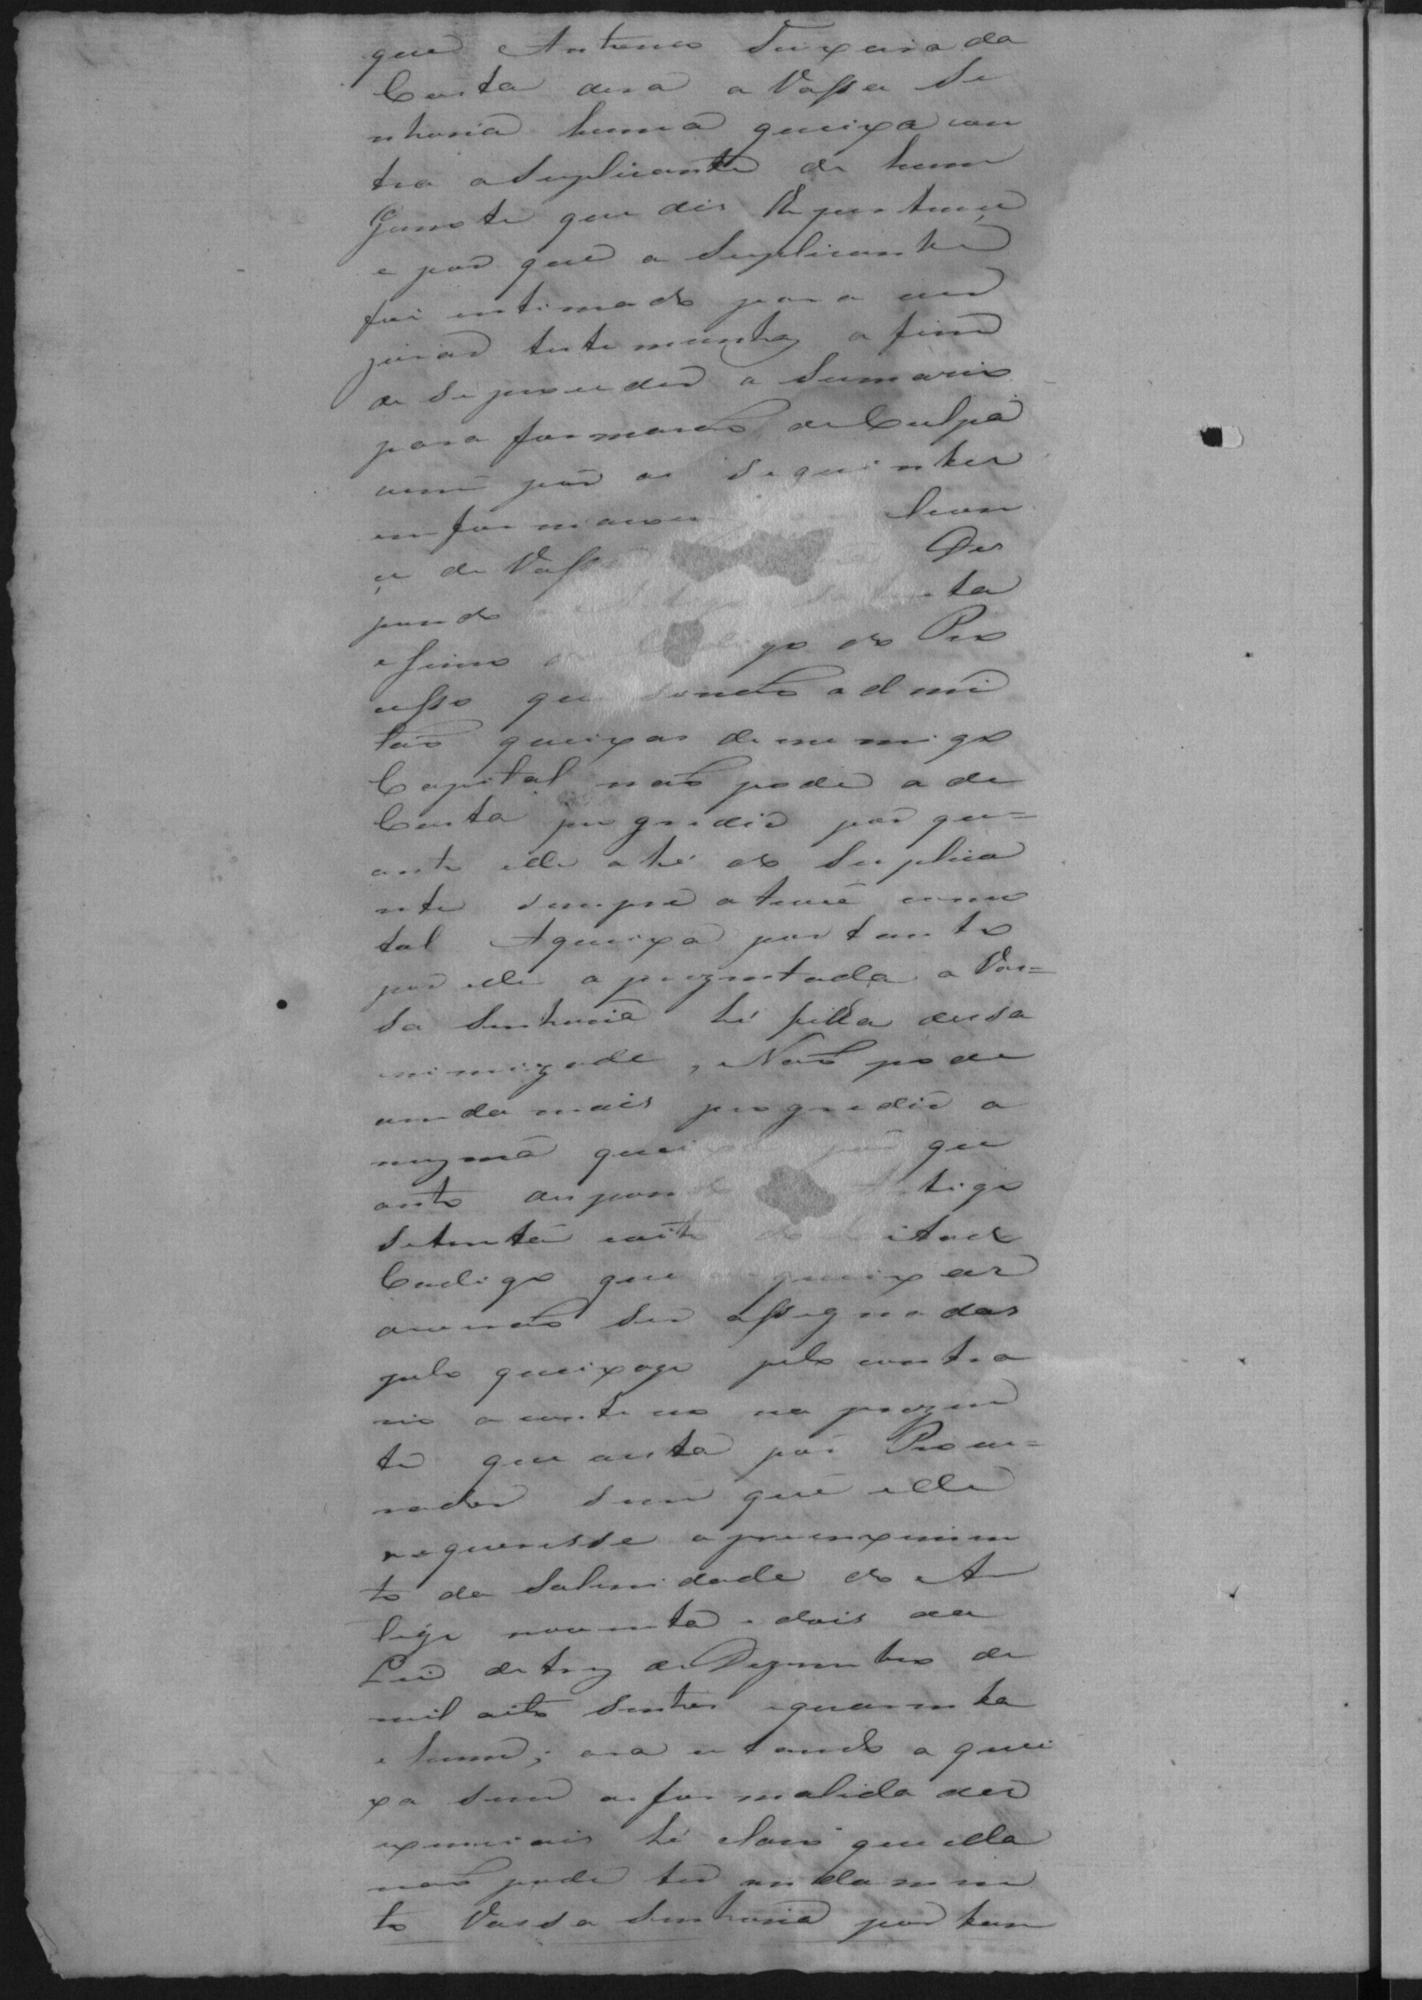 que Antonio Teixeira da
Costa dera a Vossa Se
nhoria huma queixa con
tra o Suplicante de hum
Garrote que dis lhe pertence
e por que o Suplicante
foi intimado para ver
jurar testemunhas a fim
de se proceder a Sumario
para formação de Culpa
vem por as seguintes
enformacoens
ça de Voss Des
pondo ta
e sinco go do Pro
cesso que senão admi
tão queixas de enemigo
Capital não pode a de
Costa progredir por qu=
anto elle athé do Suplica
nte sempre a teve como
tal Aqueixa portanto
por elle aprezentada a Vos=
sa Senhoria hé filla dessa
inimizade, Não pode
ainda mais progredir a
mezma queixa por que
anto despondo Artigo
setenta oito do Citado
Codigo que as queixas
deverão ser assignadas
pelo queixozo pelo contra
rio aconteceo na prezen
te que esta por Procu=
rador sem que elle
requeresse o preenximen
to da Solenidade do Ar
tigo noventa e dois da
Lei de trez de Dezembro de
mil oito sentos equarenta
e hum; ora estando a quei
xa sem as formalidades
exenciais hé claro que ella
não pode ter andamen
to Vossa Senhoria por tan